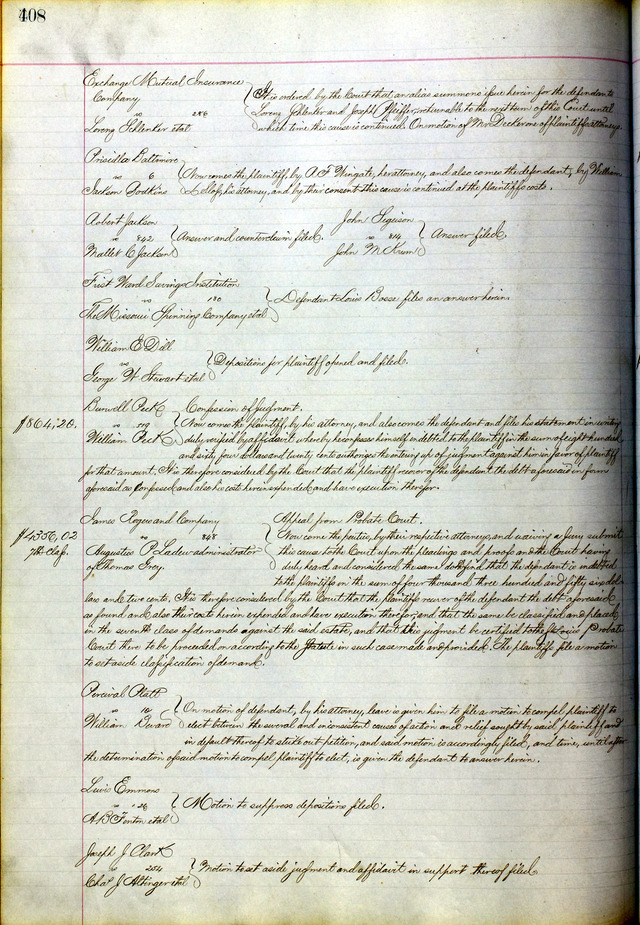 408
Exchange Mutual Insurance
Company
vs 286
Lorenz Schlenker et al
It is ordered by the Court that an alias summons issue herein for the defendants
Lorenz Schlenker and Joseph Pfeiffer, returnable to the next term of this Court until
which time this cause is continued. On motion of Mr. Decker one of plaintiffs attorneys.
Priscilla Baltimore
vs 6
Jackson Dodkins
Now comes the plaintiff, by A. F. Wingate, her attorney, and also comes the defendant, by William
his attorney, and by their consent this cause is continued at the plaintiffs costs.
Robert Jackson
vs 842
Mallet C Jackson
Answer and counterclaim filed.
John Segison
vs 814
John McKeum
Answer filed.
First Ward Savings Institution
vs 180
The Missouri Spinning Company et al
Defendant Louis Bosse files an answer herein.
William E Dill
vs
George W Stewart et al
Depositions for plaintiff opened and filed.
Burwell Peck
vs
William Peck
Confession of Judgment.
$864.20.
Now comes the plaintiff, by his attorney, and also comes the defendant and files his statement in writing
duly verified by affidavit whereby he confesses himself indebted to the plaintiff in the sum of eight hundred
and sixty four dollars and twenty cents authorizes the entering up of judgment against him in favor of plaintiff
for that amount. It is therefore considered by the Court that the plaintiff recover of the defendant the debt aforesaid in form
aforesaid as confessed and also his costs herein expended and have execution therefor.
James Rogers and Company
vs 848
Augustus P. Ladew administrator
of Thomas Gray.
Appeal from Probate Court.
$4356.02
7th class.
Now come the parties, by their respective attorneys, and waiving a Jury submit
this cause to the Court upon the pleadings and proofs and the Court having
duly heard and considered the same doth find that the defendant is indebted
to the plaintiffs in the sum of four thousand three hundred and fifty six dol-
lars and two cents. It is therefore considered by the Court that the plaintiffs recover of the defendant the debt aforesaid
as found and also their costs herein expended and have execution therefor, and that the same be classified and placed
in the seventh class of demands against the said estate, and that this judgment be certified to the Probate
Court there to be proceeded on according to the Statute in such case made and provided. The plaintiffs file a motion
to set aside classification of demand.
Percival Platt
vs
William Deward
On motion of defendant, by his attorney, leave is given him to file a motion to compel plaintiff to
elect between the several and inconsistent causes of action and relief sought by said plaintiff and
in default thereof to strike out petition, and said motion is accordingly filed, and time, until after
the determination of said motion to compel plaintiff to elect, is given the defendant to answer herein.
Lewis Emmons
vs 126
A. B. Fenton et al
Motion to suppress depositions filed.
Joseph J Clark
vs 254
Chas J Altinger et al
Motion to set aside judgment and affidavit in support thereof filed.